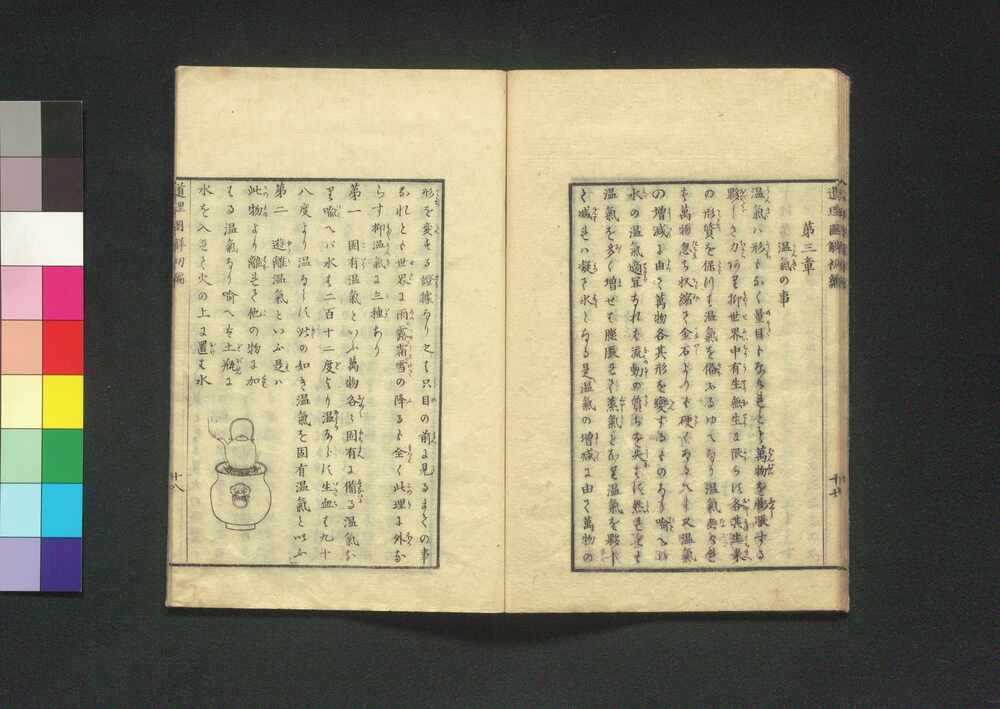 第三章
温氣の事
温氣ハ形もなく量目もなきものにて萬物を膨漲する
夥しき力あり抑世界中有生無生に限らす各其生来
の形質を保つも温氣を備ふるゆへなり温氣
萬物忽ち収縮て金石よりも硬くなるへし又温氣
の増減に由て萬物各其形を變するものあり喩へは
水の温氣適宜なれは流動の質ちを失はす然るに
温氣を多く増せは膨脹して蒸氣となり温氣を夥しく
減せは凝て氷となる是温氣の増減に由て萬物の
十七
形を変する證據なり之は只目の前に見るまての事
なれとも世界に雨露霜雪の降るも全く此理に外な
らす抑温氣に三種あり
第一 固有温氣といふ萬物各々固有に備る温氣な
り喩へバ水は二百十二度より温ならす生血は九十
八度より温ならす此の如き温氣を固有温氣と以ふ
第二 遊離温氣といふ是は
此物より離れて他の物に加
はる温氣なり喩へは土瓶に
水を入れて火の上に置は水
道理圖解初編
十八